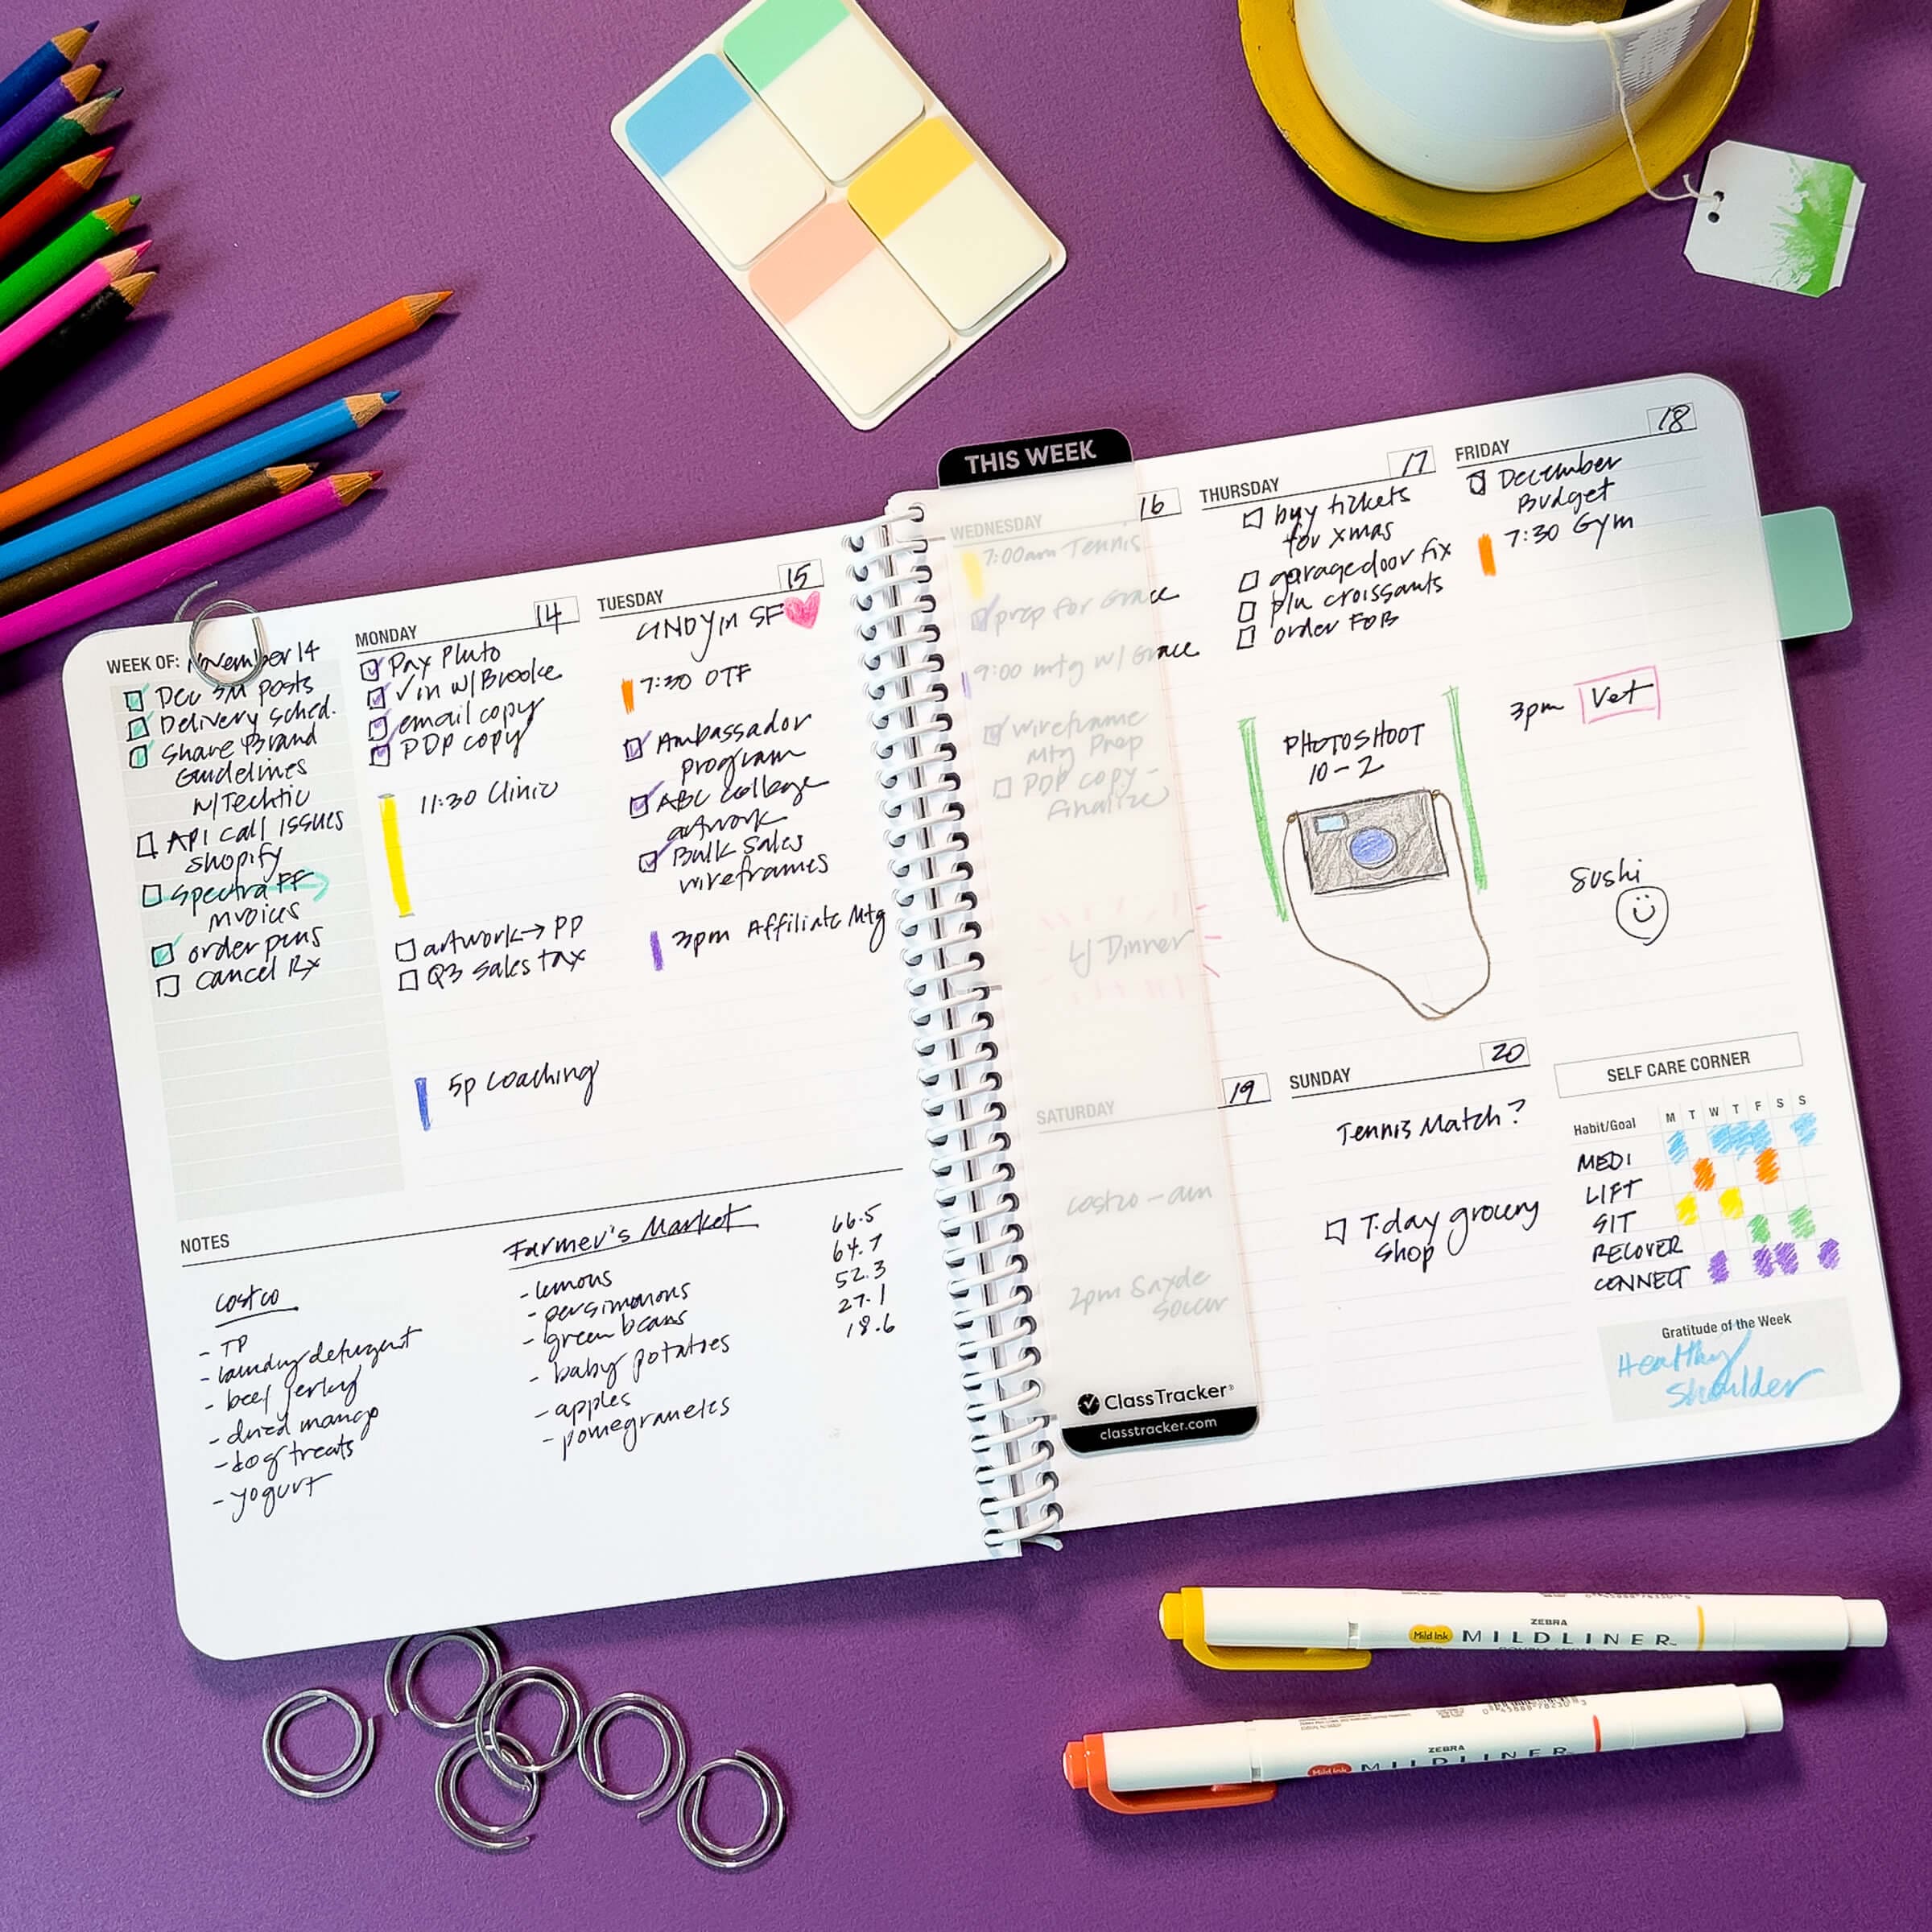 WEEK OF: November 14
Dec SM posts
Delivery Sched.
Share Brand
Guidelines
w/Techtic
API call issues
shopify
Spectra FF
invoices
order pens
cancel Rx
MONDAY 14
Pay Pluto
✓in w/Brooke
email copy
PDP copy
11:30 Clinic
artwork → PP
Q3 sales tax
5p Coaching
TUESDAY 15
CINDY in SF
7:30 OTF
Ambassador
program
ABC college
artwork
Bulk Sales
wireframes
3pm Affiliate Mtg
NOTES
Costco
- TP
- laundry detergent
- beef jerky
- dried mango
- dog treats
- yogurt
Farmer's Market
- lemons
- persimmons
- green beans
- baby potatoes
- apples
- pomegranetes
66.5
64.7
52.3
27.1
18.6
THIS WEEK
WEDNESDAY 16
7:00am Tennis
prep for Grace
9:00 mtg w/ Grace
wireframe
Mtg Prep
PDP copy -
finalize
LJ Dinner
SATURDAY 19
costco - am
2pm Sayde
Soccer
ClassTracker®
classtracker.com
THURSDAY 17
buy tickets
for xmas
garage door fix
p/u croissants
order FOB
PHOTOSHOOT
10-2
FRIDAY 18
December
Budget
7:30 Gym
3pm Vet
Sushi
SUNDAY 20
Tennis Match?
T-day grocery
shop
SELF CARE CORNER
Habit/Goal M T W T F S S
MEDI
LIFT
SIT
RECOVER
CONNECT
Gratitude of the Week
Healthy
Shoulder
ZEBRA
Mild Ink MILDLINER
ZEBRA
Mild Ink MILDLINER